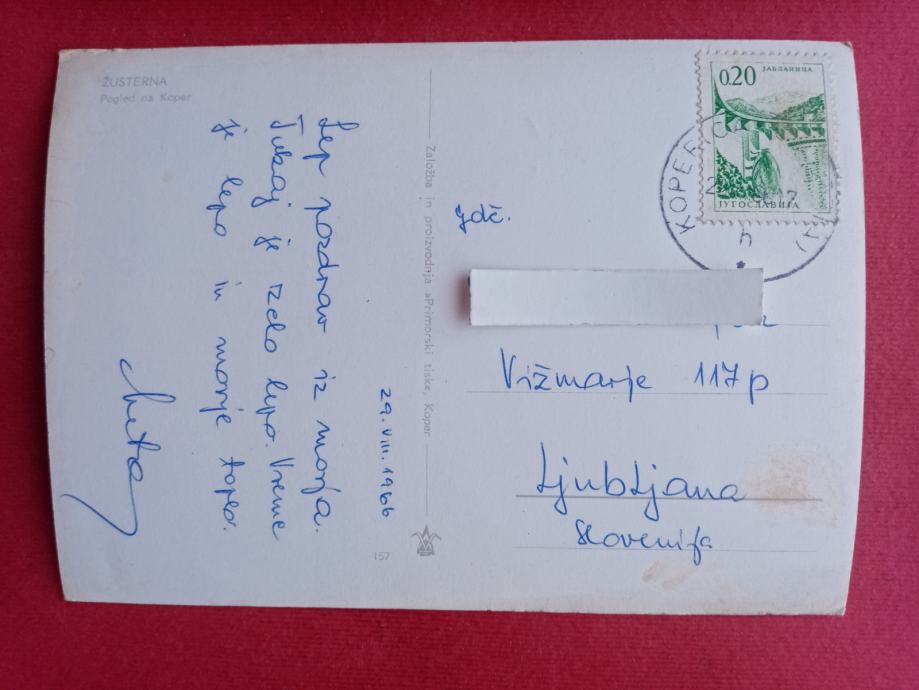 ŽUSTERNA
Pogled na Koper
29. VIII. 1966
Lep pozdrav iz morja.
Tukaj je zelo lepo. Vreme
je lepo in morje toplo.
Meta
Založba in proizvodnja »Primorski tisk«, Koper
157
0.20
ЈАБЛАНИЦА
ЈУГОСЛАВИЈА
KOPER
h
Vižmarje 117p
Ljubljana
Slovenija